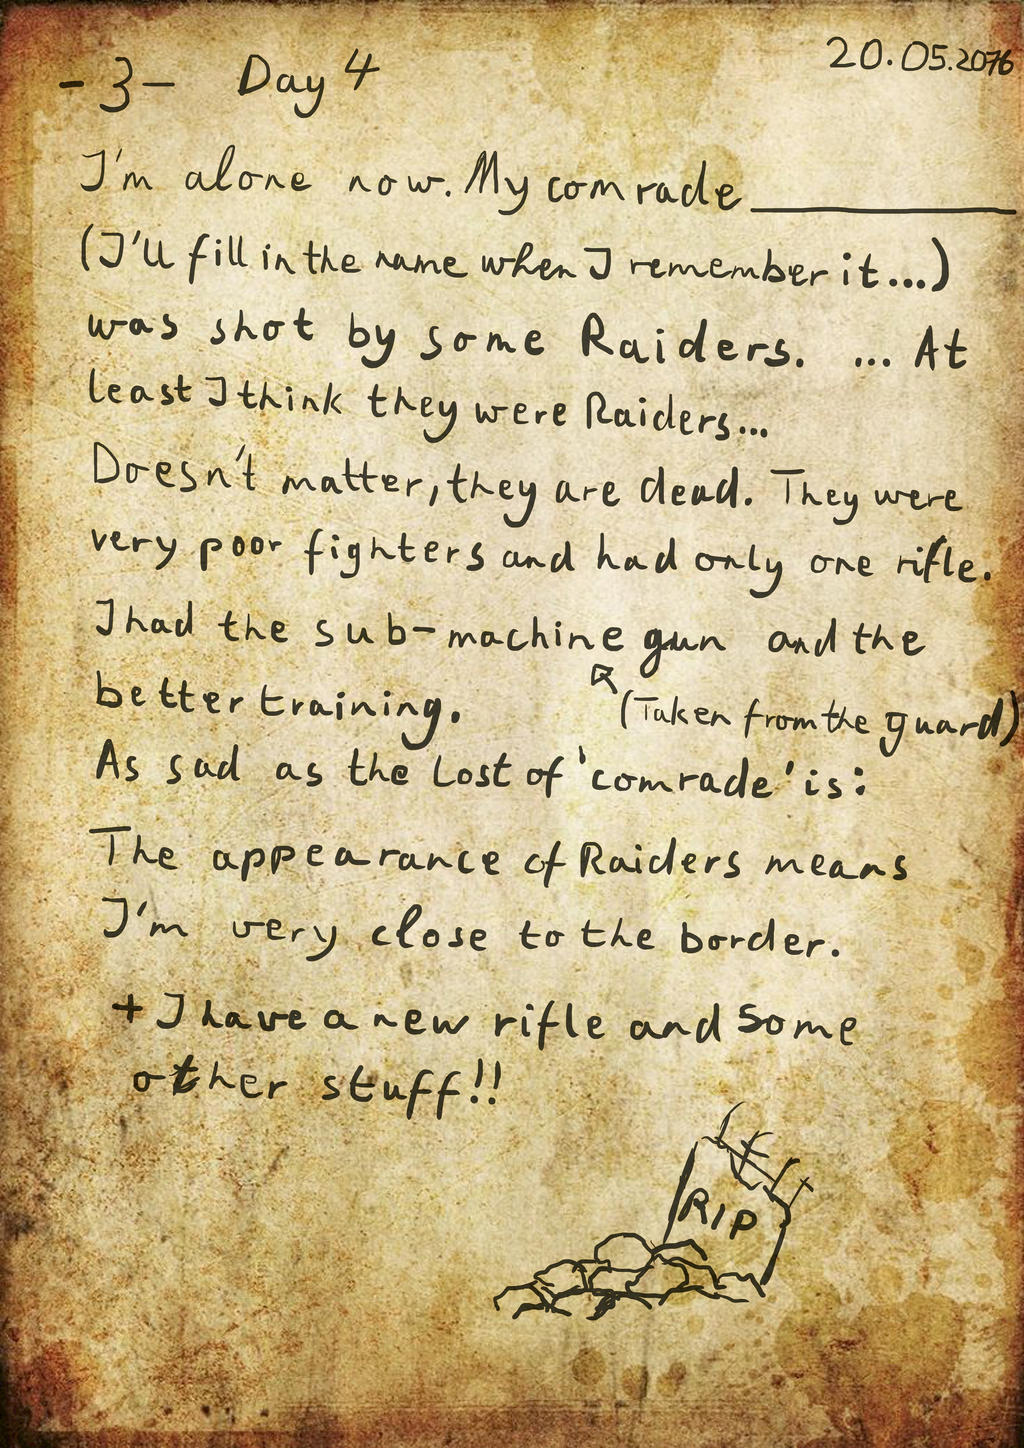 - 3 - Day 4 20.05.2076
I'm alone now. My comrade ____________
(I'll fill in the name when I remember it...)
was shot by some Raiders. ... At
least I think they were Raiders...
Doesn't matter, they are dead. They were
very poor fighters and had only one rifle.
I had the sub-machine gun and the
better training. (Taken from the guard)
As sad as the Lost of 'comrade' is:
The appearance of Raiders means
I'm very close to the border.
+ I have a new rifle and some
other stuff!!
RIP